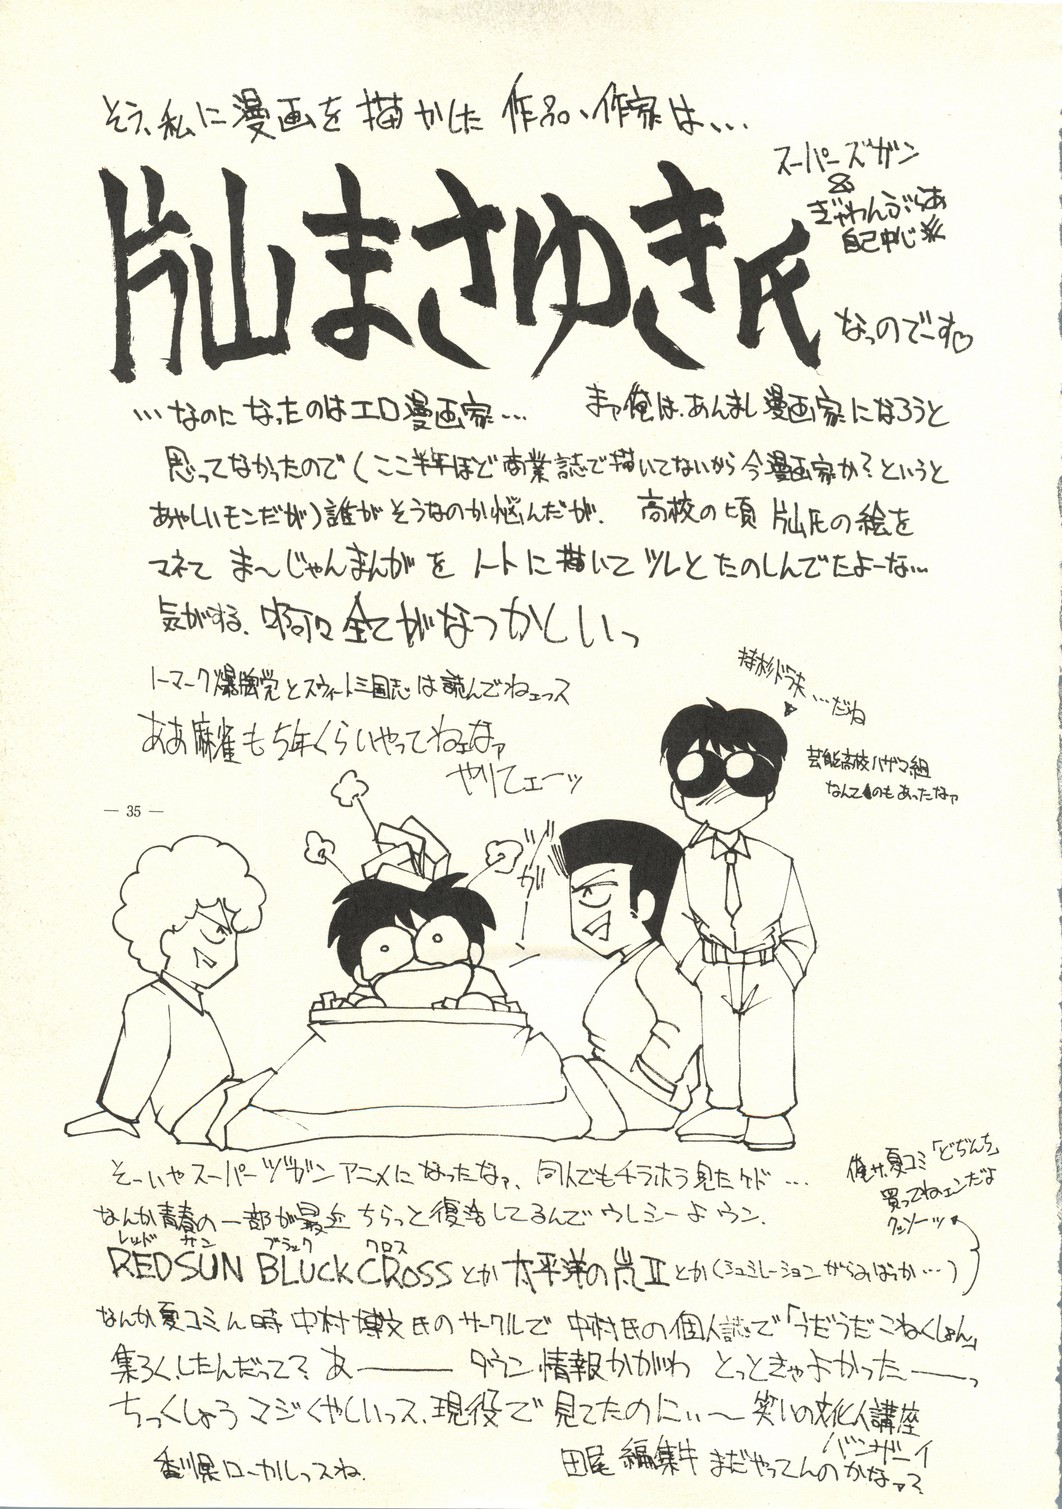 そう、私に漫画を描かした作品、作家は…
片山まさゆき氏
スーパーズガン
&
ぎゃわんぶらあ
自己中心派
なっのでーす♡
…なのになったのはエロ漫画家…　まァ俺は、あんまし漫画家になろうと
思ってなかったので(ここ半年ほど商業誌で描いてないから今漫画家か?というと
あやしいモンだが)誰がそうなのか悩んだが、高校の頃片山氏の絵を
マネて ま〜じゃんまんがを ノートに描いてツレとたのしんでたよーな…
気がする、嗚呼全てがなつかしいっ
トーマーク爆牌党とスウィート三国志は読んでねェっス
ああ麻雀も5年くらいやってねェなァ
やりてェーッ
持杉ドラ夫…だね
芸能高校ハザマ組
なんてのもあったなァ
— 35 —
ガーン
そーいやスーパーヅガンアニメになったなァ、同人でもチラホラ見たケド…
なんか青春の一部が最近ちらっと復活してるんでウレシーようン、
レッド サン ブラック クロス
RED SUN BLUCK CROSSとか太平洋の嵐Ⅱとか(シュミレーションがらみばっか…)
俺サ、夏コミ「どぢんち」
買ってねェンだよ
クッソーッ
なんか夏コミん時中村博文氏のサークルで 中村氏の個人誌で「うだうだこねくしょん」
集ろくしたんだって? あ―― タウン情報かがわ とっときゃよかった――っ
ちっくしょうマジくやしいっス、現役で見てたのにぃ〜 笑いの文化人講座
バンザーイ
香川県ローカルっスね、
田尾編集牛まだやってんのかなァ?